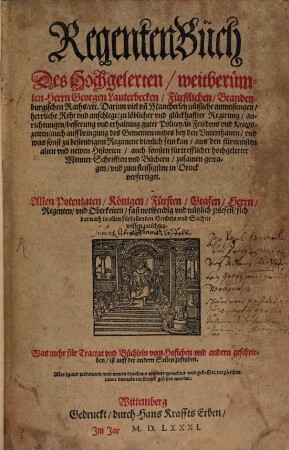 RegentenBuch
Des Hochgelerten / weitberüm-
ten Herrn Georgen Lauterbecken / Fürstlichen / Branden-
burgischen Raths / etc. Darin viel vnd Mancherley nützliche anweisungen /
herrliche Lehr vnd anschlege / zu löblicher vnd glückhaffter Regirung / an-
richtungen / besserung vnd erhaltung guter Policey / in Friedens vnd Kriegs-
zeiten / auch auffbringung des Gemeinennutzes bey den Vnterthanen / vnd
was sonst zu bestendigem Regiment dienlich sein kan / aus den fürnemsten
alten vnd newen Historien / auch sonsten fürtrefflicher hochgelerter
Menner Schrifften vnd Büchern / zusamen getra-
gen / vnd zum fleissigsten in Druck
verfertiget.
Allen Potentaten / Königen / Fürsten / Grafen / Herrn /
Regenten / vnd Oberkeiten / fast notwendig vnd nützlich zulesen / sich
darnach in allen fürfallenden Hendeln vnd Sachen
wissen zurichten.
Was mehr für Tractat vnd Büchlein vom Hofleben vnd andern geschrie-
ben / ist auff der andern Seiten zufinden.
Wittemberg
Gedruckt / durch Hans Kraffts Erben /
Im Jar M. D. LXXXI.